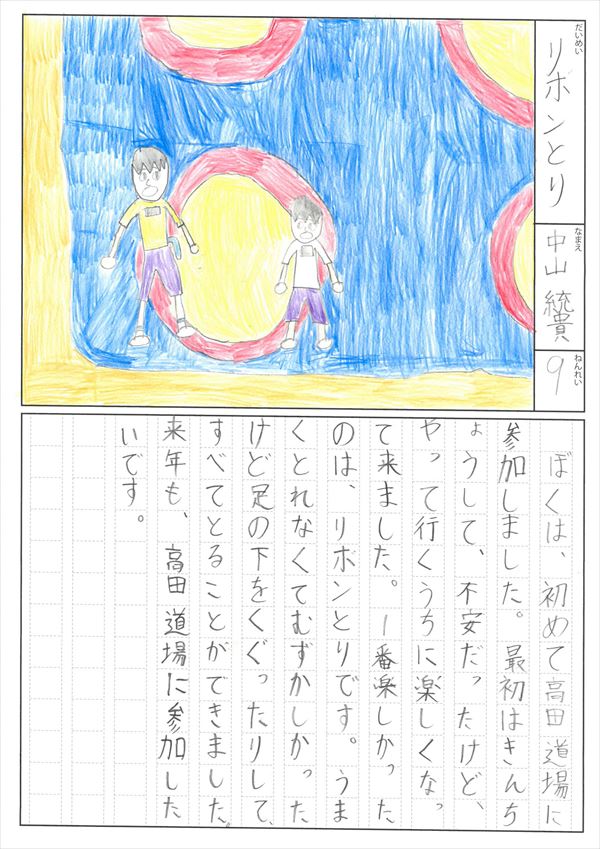 だいめい
リホンとり
なまえ
中山 統貴
ねんれい
9
ぼくは、初めて高田道場に
参加しました。最初はきんち
ょうして、不安だったけど、
やって行くうちに楽しくなっ
て来ました。一番楽しかった
のは、リボンとりです。うま
くとれなくてむずかしかった
けど足の下をくぐったりして、
すべてとることができました。
来年も、高田道場に参加した
いです。